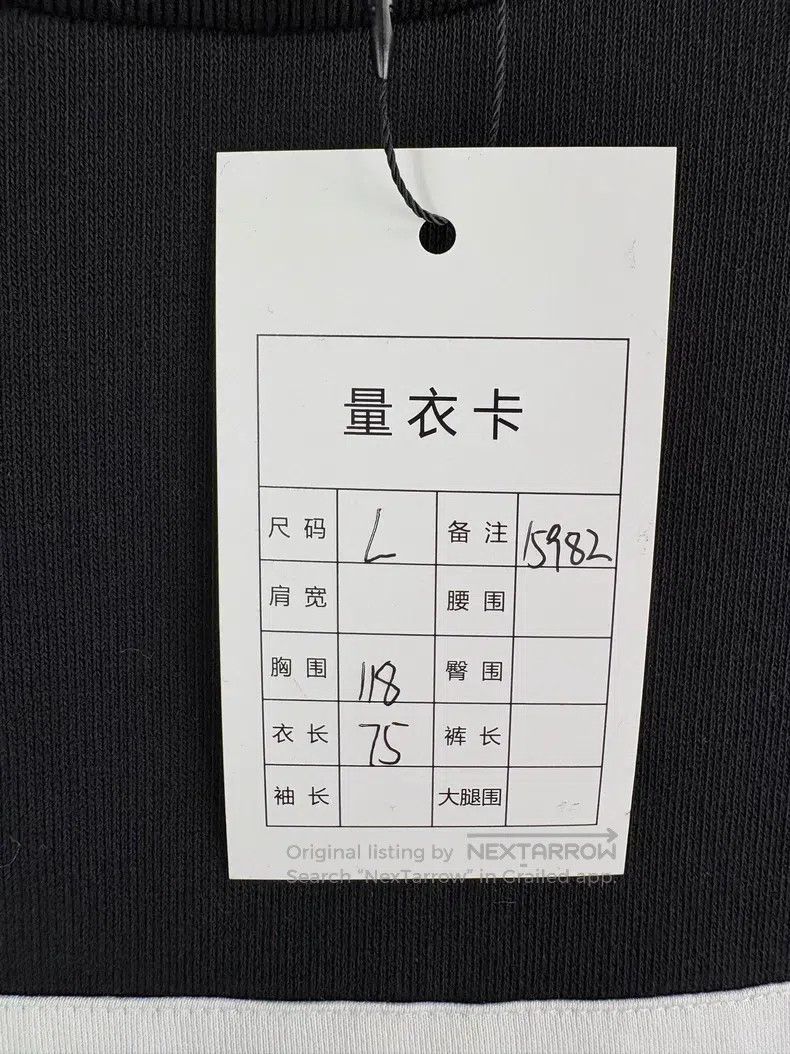 量衣卡
尺码 L 备注 15982
肩宽 腰围
胸围 118 臀围
衣长 75 裤长
袖长 大腿围
Original listing by NEXTARROW
Search "NexTarrow" in Grailed app.